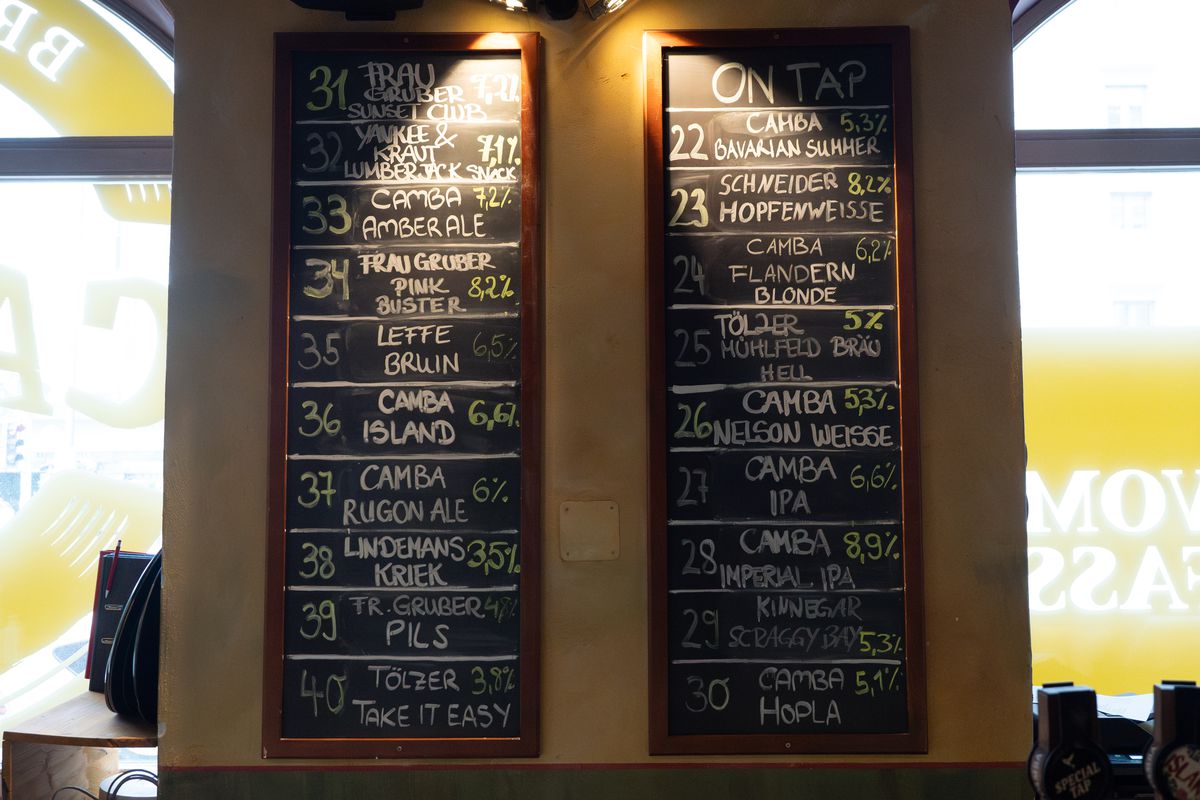 31 FRAU
GRUBER
SUNSET CLUB
32 YANKEE & 7,1%
KRAUT
LUMBERJACK SNACK
33 CAMBA 7,2%
AMBER ALE
34 FRAU GRUBER
PINK 8,2%
BUSTER
35 LEFFE 6,5%
BRUIN
36 CAMBA 6,6%
ISLAND
37 CAMBA 6%
RUGON ALE
38 LINDEMANS 3,5%
KRIEK
39 FR. GRUBER
PILS
40 TÖLZER 3,8%
TAKE IT EASY
ON TAP
22 CAMBA 5,3%
BAVARIAN SUMMER
23 SCHNEIDER 8,2%
HOPFENWEISSE
24 CAMBA 6,2%
FLANDERN
BLONDE
25 TÖLZER 5%
MÜHLFELD BRÄU
HELL
26 CAMBA 5,3%
NELSON WEISSE
27 CAMBA 6,6%
IPA
28 CAMBA 8,9%
IMPERIAL IPA
29 KINNEGAR
SCRAGGY BAY 5,3%
30 CAMBA 5,1%
HOPLA
VOM
FASS
SPECIAL
TAP